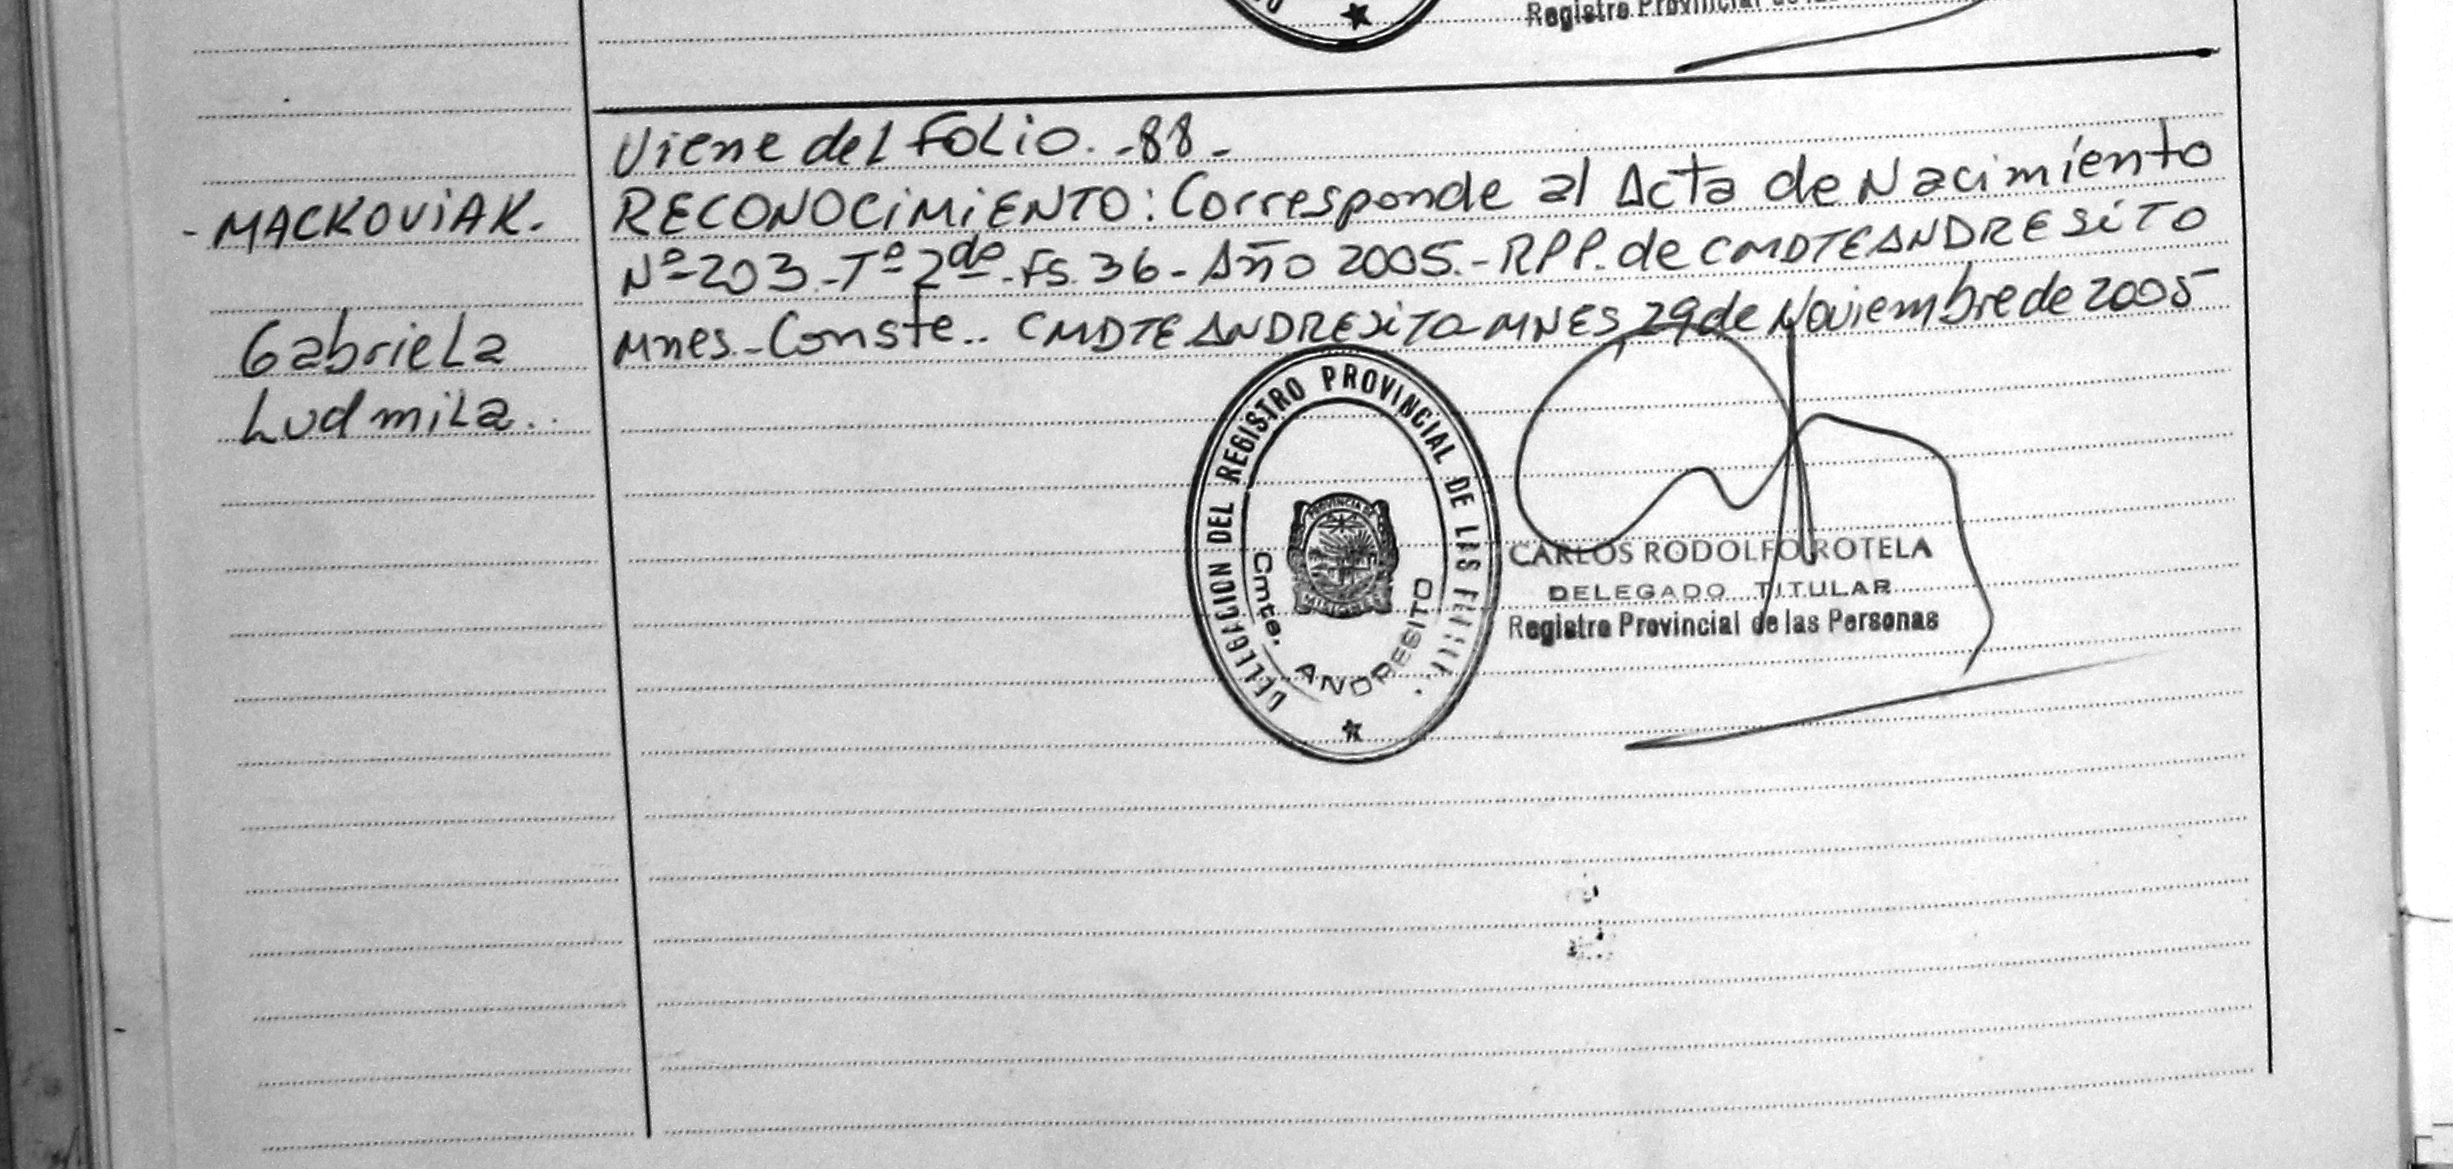 Registro Provincial de las
Viene del Folio. -88-
RECONOCIMIENTO: Corresponde al Acta de Nacimiento
-MACKOVIAK.
Nº-203.-Tº-2do-Fs.36- Año 2005.- RPP. de CMDTE ANDRESITO
Mnes.- Conste.. CMDTE ANDRESITO MNES, 29 de Noviembre de 2005
Gabriela
Ludmila..
DELEGACION DEL REGISTRO PROVINCIAL DE LAS
PROVINCIA DE
MISIONES
Cmte. ANDRESITO
CARLOS RODOLFO ROTELA
DELEGADO TITULAR
Registro Provincial de las Personas